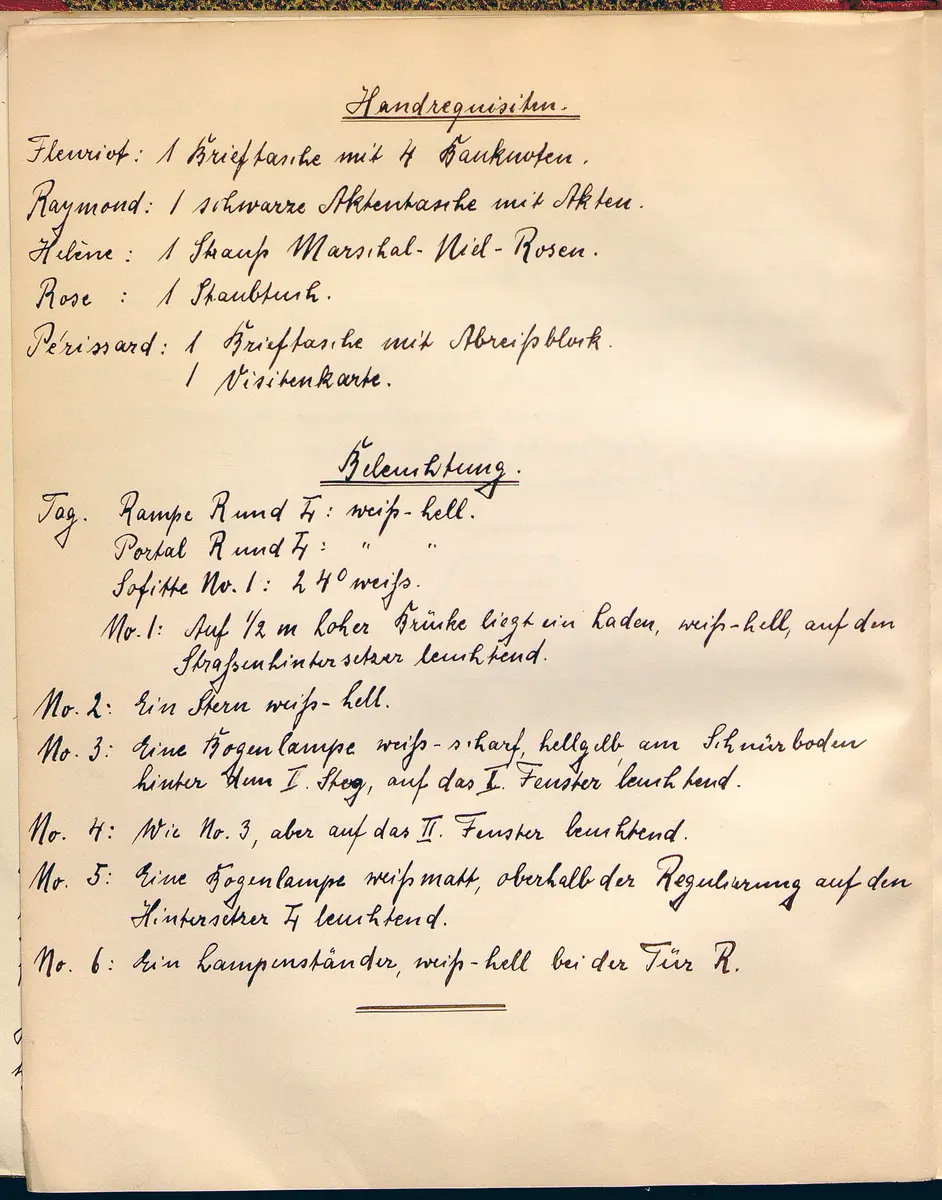 Handrequisiten.
Fleuriot: 1 Brieftasche mit 4 Banknoten.
Raymond: 1 schwarze Aktentasche mit Akten.
Helène: 1 Strauß Marschal-Niel-Rosen.
Rose : 1 Staubtuch.
Périssard: 1 Brieftasche mit Abreißblock.
1 Visitenkarte.
Beleuchtung.
Tag. Rampe R und L: weiß-hell.
Portal R und L: " "
Sofitte No. 1: 2 40 weiß.
No. 1: Auf 1/2 m hoher Brücke liegt ein Laden, weiß-hell, auf den
Straßenhintersetzer leuchtend.
No. 2: Ein Stern weiß-hell.
No. 3: Eine Bogenlampe weiß-scharf, hellgelb, am Schnürboden
hinter dem I. Steg, auf das I. Fenster leuchtend.
No. 4: Wie No. 3, aber auf das II. Fenster leuchtend.
No. 5: Eine Bogenlampe weißmatt, oberhalb der Regulierung auf den
Hintersetzer L leuchtend.
No. 6: Ein Lampenständer, weiß-hell bei der Tür R.